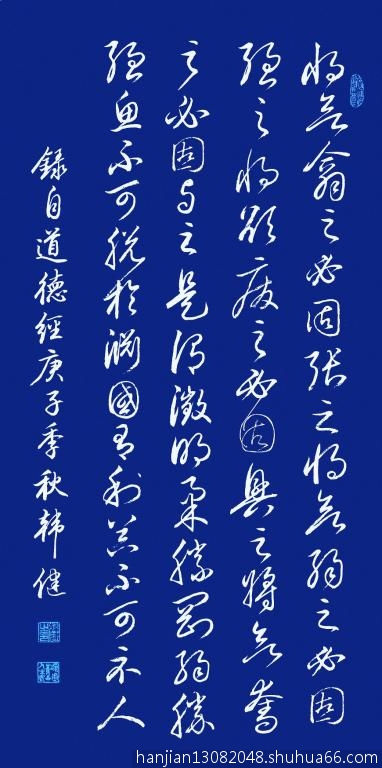 将欲翕之必固张之将欲弱之必固
强之将欲废之必固興之將欲奪
之必固与之是谓微明柔勝剛弱勝
强魚不可脱於渊國之利器不可示人
録自道德經庚子季秋韩健
hanjian13082048.shuhua66.com